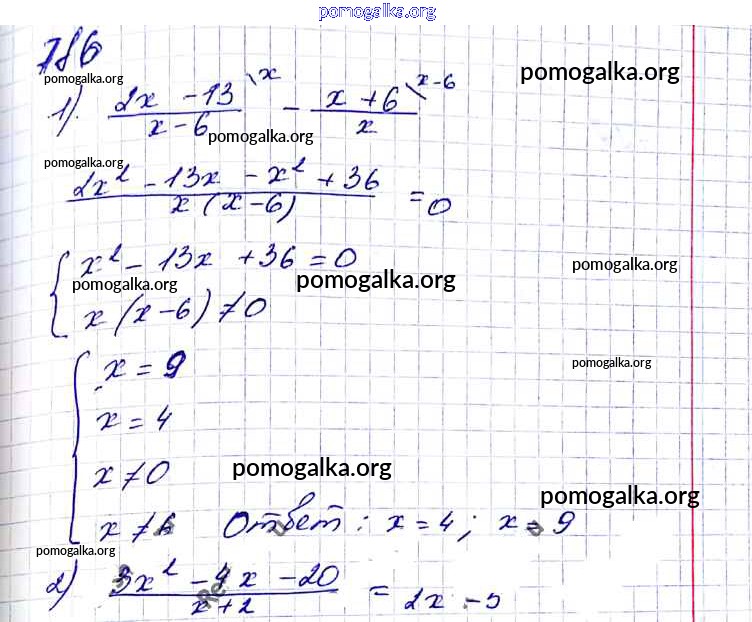 pomogalka.org
786
pomogalka.org
1) (2x - 13)/(x - 6) \x - (x + 6)/x \x-6
pomogalka.org
pomogalka.org
pomogalka.org
(2x² - 13x - x² + 36)/(x(x-6)) = 0
{ x² - 13x + 36 = 0
pomogalka.org
pomogalka.org
pomogalka.org
x(x-6) ≠ 0
{ x = 9
pomogalka.org
x = 4
x ≠ 0
pomogalka.org
pomogalka.org
x ≠ 6 Ответ: x = 4; x = 9
pomogalka.org
2) (3x² - 4x - 20)/(x+2) = 2x - 5